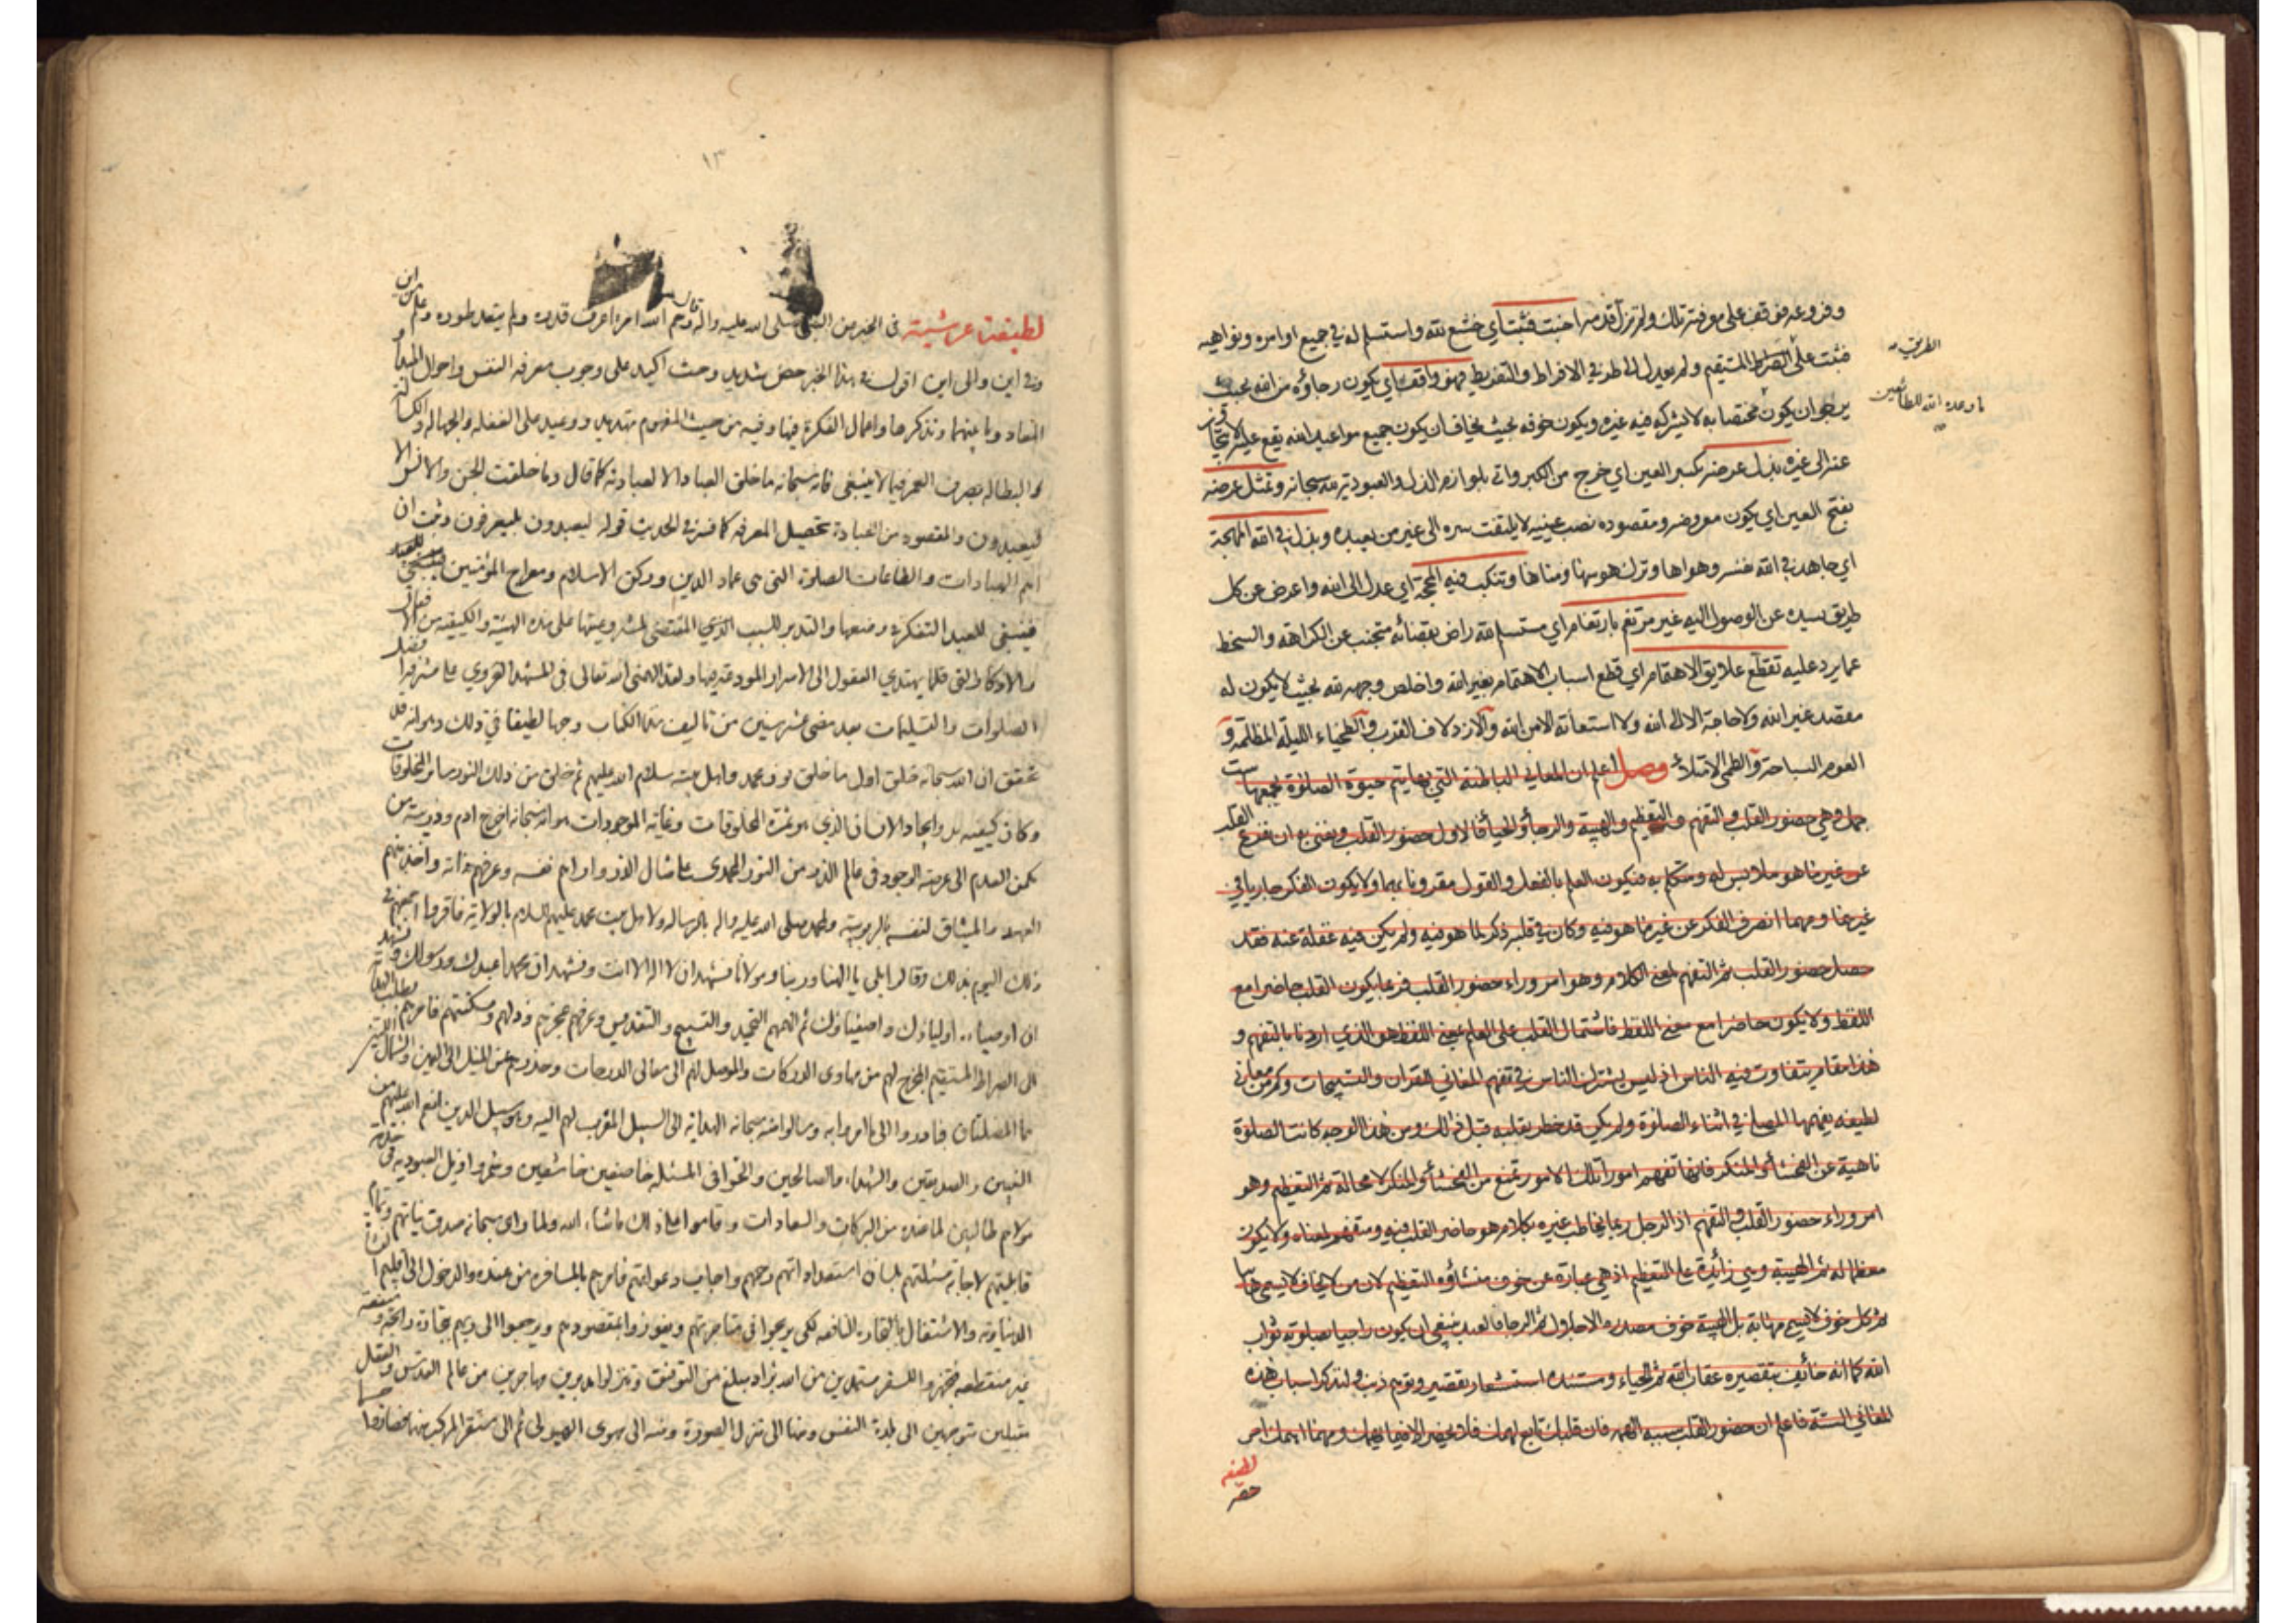 وفروعه فوقف على معرفته تلك ولم تزل قدمه اخبت فثبت اي خشع لله واستسلم له في جميع اوامره ونواهيه
فثبت على الصراط المستقيم ولم يعدل الى طرفي الافراط والتفريط فهو واقف اي يكون رجاؤه من الله بحيث
الطريق
يرجو ان يكون مختصا به لا يشركه فيه غيره ويكون خوفه بحيث يخاف ان يكون جميع مواعيد الله يقع عليه
ما وعده الله للطائعين
عنه الى غيره بذل عرضه بكسر العين اي خرج من الكبر واتى بلوازم الذل والعبودية لله سبحانه وتمثل عرضه
بفتح العين اي يكون معروضه ومقصوده نصب عينيه لا يلتفت سره الى غير من يعبده وبذل في الله المهجة
اي جاهد في الله نفسه وهواها وترك هوسها ومناها وتنكب فيه المحجة اي عدل الى الله واعرض عن كل
طريق يسده عن الوصول اليه غير مرتغم بارتغام اي مستسلم لله راض بقضائه متجنب عن الكراهة والسخط
عما يرد عليه تقطع علايق الاهتمام اي قطع اسباب الاهتمام بغير الله واخلص وجهه لله بحيث لا يكون له
مقصد غير الله ولا حاجة الا الى الله ولا استعانة الا من الله والازدلاف القرب والطخياء الليلة المظلمة و
العوم السباحة والطمى الامتلاء وصل اعلم ان المعاني الباطنة التي بها يتم حيوة الصلوة يجمعها ست
جمل وهي حضور القلب والتفهم والتعظيم والهيبة والرجأ والحيأ فالاول حضور القلب ونعني به ان نفرغ القلب
عن غير ما هو ملابس له ومتكلم به فيكون العلم بالفعل والقول مقرونا بهما ولا يكون الفكر جاريا في
غيرهما ومهما انصرف الفكر عن غير ما هو فيه وكان في قلبه ذكر لما هو فيه ولم يكن فيه غفلة عنه فقد
حصل حضور القلب ثم التفهم لمعنى الكلام وهو امر وراء حضور القلب فربما يكون القلب حاضرا مع
اللفظ ولا يكون حاضرا مع معنى اللفظ فاشتمال القلب على العلم بمعنى اللفظ هو الذي اردنا بالتفهم و
هذا مقام يتفاوت فيه الناس اذ ليس يشترك الناس في تفهم المعاني القران والتسبيحات وكم من معاني
لطيفه يفهمها المصلي في اثناء الصلوة ولم يكن قد خطر بقلبه قبل ذلك ومن هذا الوجه كانت الصلوة
ناهية عن الفحشأ والمنكر فانها تفهم امورا تلك الامور تمنع من الفحشأ والمنكر لا محالة ثم التعظيم وهو
امر وراء حضور القلب والتفهم اذ الرجل ربما يخاطب غيره بكلام هو حاضر القلب فيه ومتفهم لمعناه ولا يكون
معظما له ثم الهيبة وهي زائدة على التعظيم اذ هي عبارة عن خوف منشاؤه التعظيم لان من لا يخاف لا يسمى هائبا
ثم كل خوف لا يسمى مهابة بل الهيبة خوف مصدره الاجلال ثم الرجا فالعبد ينبغي ان يكون راجيا بصلوته ثواب
الله كما انه خائف بتقصيره عقاب الله ثم الحياء ومستنده استشعار تقصير وتوهم ذنب ولنذكر اسباب هذه
المعاني الستة فاعلم ان حضور القلب سببه الهمه فان قلبك تابع لهمك فلا يحضر الا فيما يهمك ومهما اهمك امر
لطيفه
حضر
١٣
لطيفة عرشية في الخبر عن النبي صلى الله عليه واله قال رحم الله امرءا عرف قدره ولم يتعد طوره وعلم من اين
وفي اين والى اين اقول في هذا الخبر حض شديد وحث اكيد على وجوب معرفة النفس واحوال المبدأ و
المعاد وما بينهما وتذكرها واعمال الفكرة فيها وفيه من حيث المفهوم تهديد ووعيد على الغفله والجهاله والكسالة
والبطاله بصرف العمر فيما لا ينبغي فانه سبحانه ما خلق العباد الا لعبادته كما قال وما خلقت الجن والانس الا
ليعبدون والمقصود من العبادة تحصيل المعرفه كما فسر في الحديث قوله ليعبدون بليعرفون وثبت ان
اهم العبادات والطاعات الصلوة التي هي عماد الدين وركن الاسلام ومعراج المؤمنين
فينبغي للعبد التفكر في وضعها والتدبر للسبب الذي المقتضى لمشروعيتها على هذه الهيئة والكيفيه من
والاذكار التي قلما يهتدي العقول الى الاسرار المودعة فيها ولقد الهمني الله تعالى في المشهد الغروي على مشرفها افضل
الصلوات والتسليمات بعد مضى عشر سنين من تاليف هذا الكتاب وجها لطيفا في ذلك وهو انه قد
تحقق ان الله سبحانه خلق اول ما خلق نور محمد واهل بيته سلام الله عليهم ثم خلق من ذلك النور سائر المخلوقات
وكان كيفيه بدو ايجاد الانسان الذي هو ثمرة المخلوقات وغاية الموجودات هو انه سبحانه اخرج ادم وذريته من
مكمن العدم الى عرصة الوجود في عالم الذر من النور المحمدي على مثال الذر واراهم نفسه وعرفهم ذاته واخذ منهم
العهد والميثاق لنفسه بالربوبية ولمحمد صلى الله عليه واله بالرساله ولاهل بيت محمد عليهم السلام بالولاية فاقروا اجمعهم في
ذلك اليوم بذلك وقالوا بلى يا الهنا وربنا ومولانا نشهد ان لا اله الا انت ونشهد ان محمدا عبدك ورسولك ونشهد
ان اوصياءه اولياؤك واصفياؤك ثم الهمهم التحميد والتسبيح والتقديس وعرفهم عجزهم وذلهم ومسكنتهم فامرهم بطلب الهداية
الى الصراط المستقيم المخرج لهم من مهاوي الدركات والموصل لهم الى معالي الدرجات وحذرهم عن الميل الى اليمين والشمال
هما المضلتان فبادروا الى ما امروا به وسالوا منه سبحانه الهداية الى السبيل المقرب لهم اليه وهو سبيل الذين انعم الله عليهم من
النبيين والصديقين والشهداء والصالحين والحوا في المسئله خاضعين خاشعين وشمروا ذيل العبوديه في خدمة
مولاهم طالبين لما عنده من البركات والسعادات واقاموا على ذلك ما شاء الله ولما راى سبحانه صدق نياتهم وتمام
قابليتهم لاجابة مسئلتهم بلسان استعداداتهم رحمهم واجاب دعواتهم فامرهم بالمسافرة من عنده والدخول الى اقليم
الدنياويه والاشتغال بالتجارة النافعه لكي يربحوا في متاجرتهم ويفوزوا بمقصودهم ويرجعوا الى ربهم بتجارة رابحة و
غير منقطعه فتجهزوا للسفر مستمدين من الله بزاد مبلغ من التوفيق وتنزلوا مدبرين مهاجرين من عالم القدس والعقل
مقبلين متوجهين الى بلدة النفس ومنها الى منزل الصورة ومنه الى مهوى الهيولى ثم الى مستقر المركز منها فصاروا